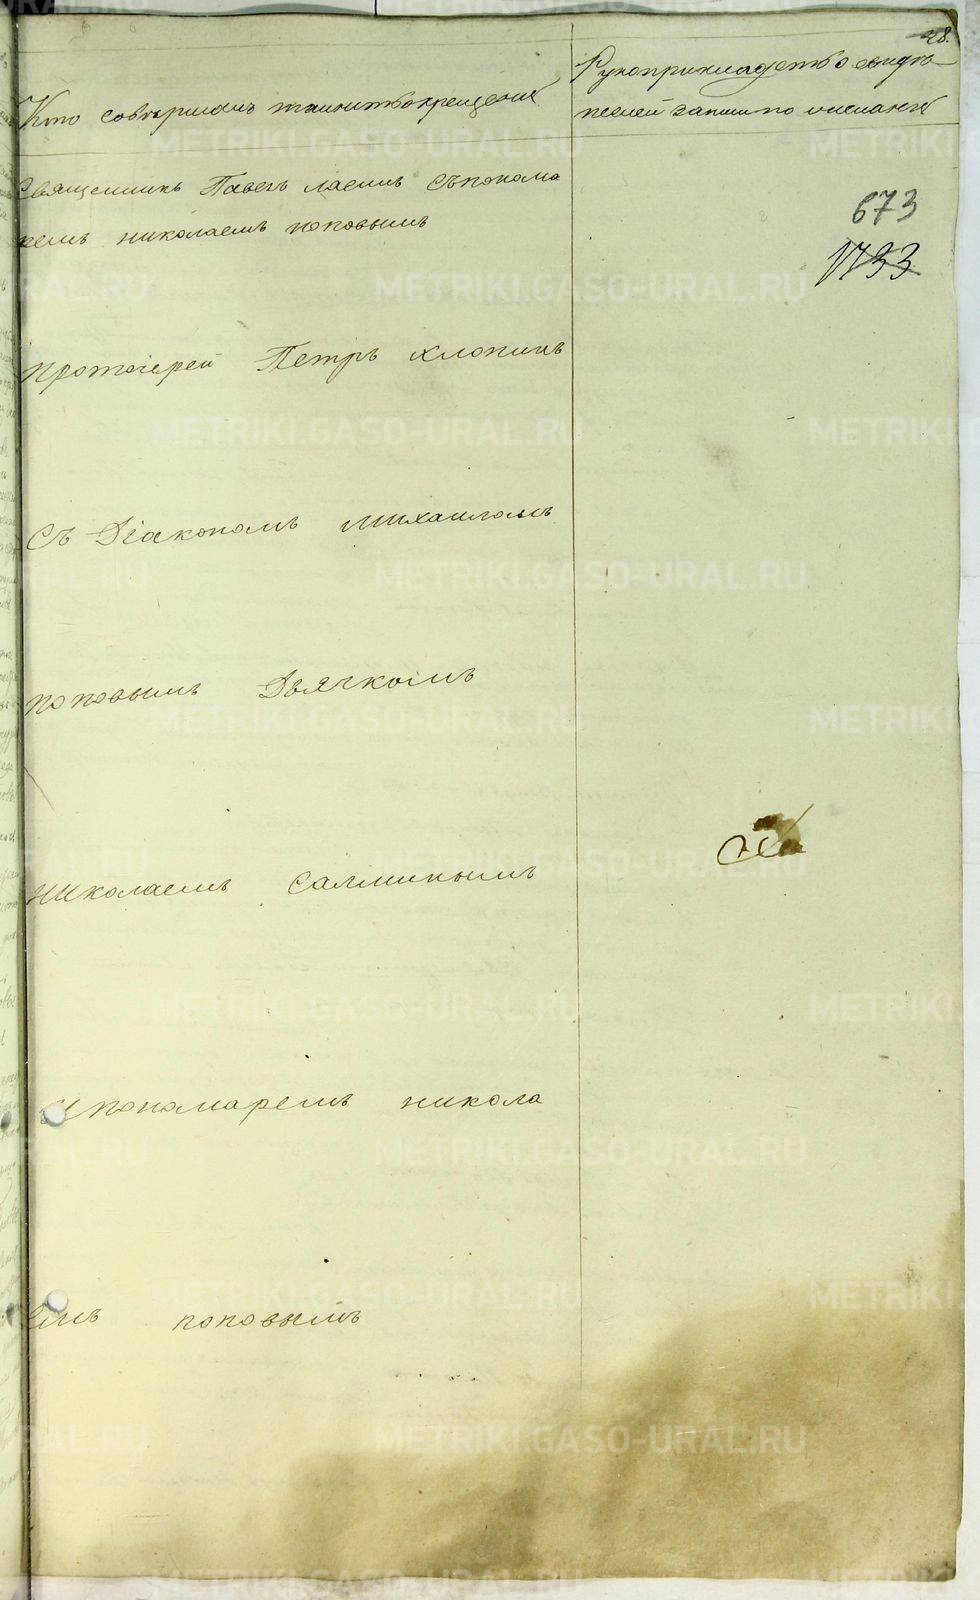 28.
Кто совершалъ таинство крещенія
Рукоприкладство свидѣ-
телей записи по желанію
Священникъ Павелъ съ понома
ремъ николаемъ поповымъ
673
1733
протоіерей Петръ Хлопинъ
Съ Діакономъ михаиломъ
поповымъ Дьячкомъ
николаемъ Салминымъ
и пономаремъ никола
емъ поповымъ
METRIKI.GASO-URAL.RU